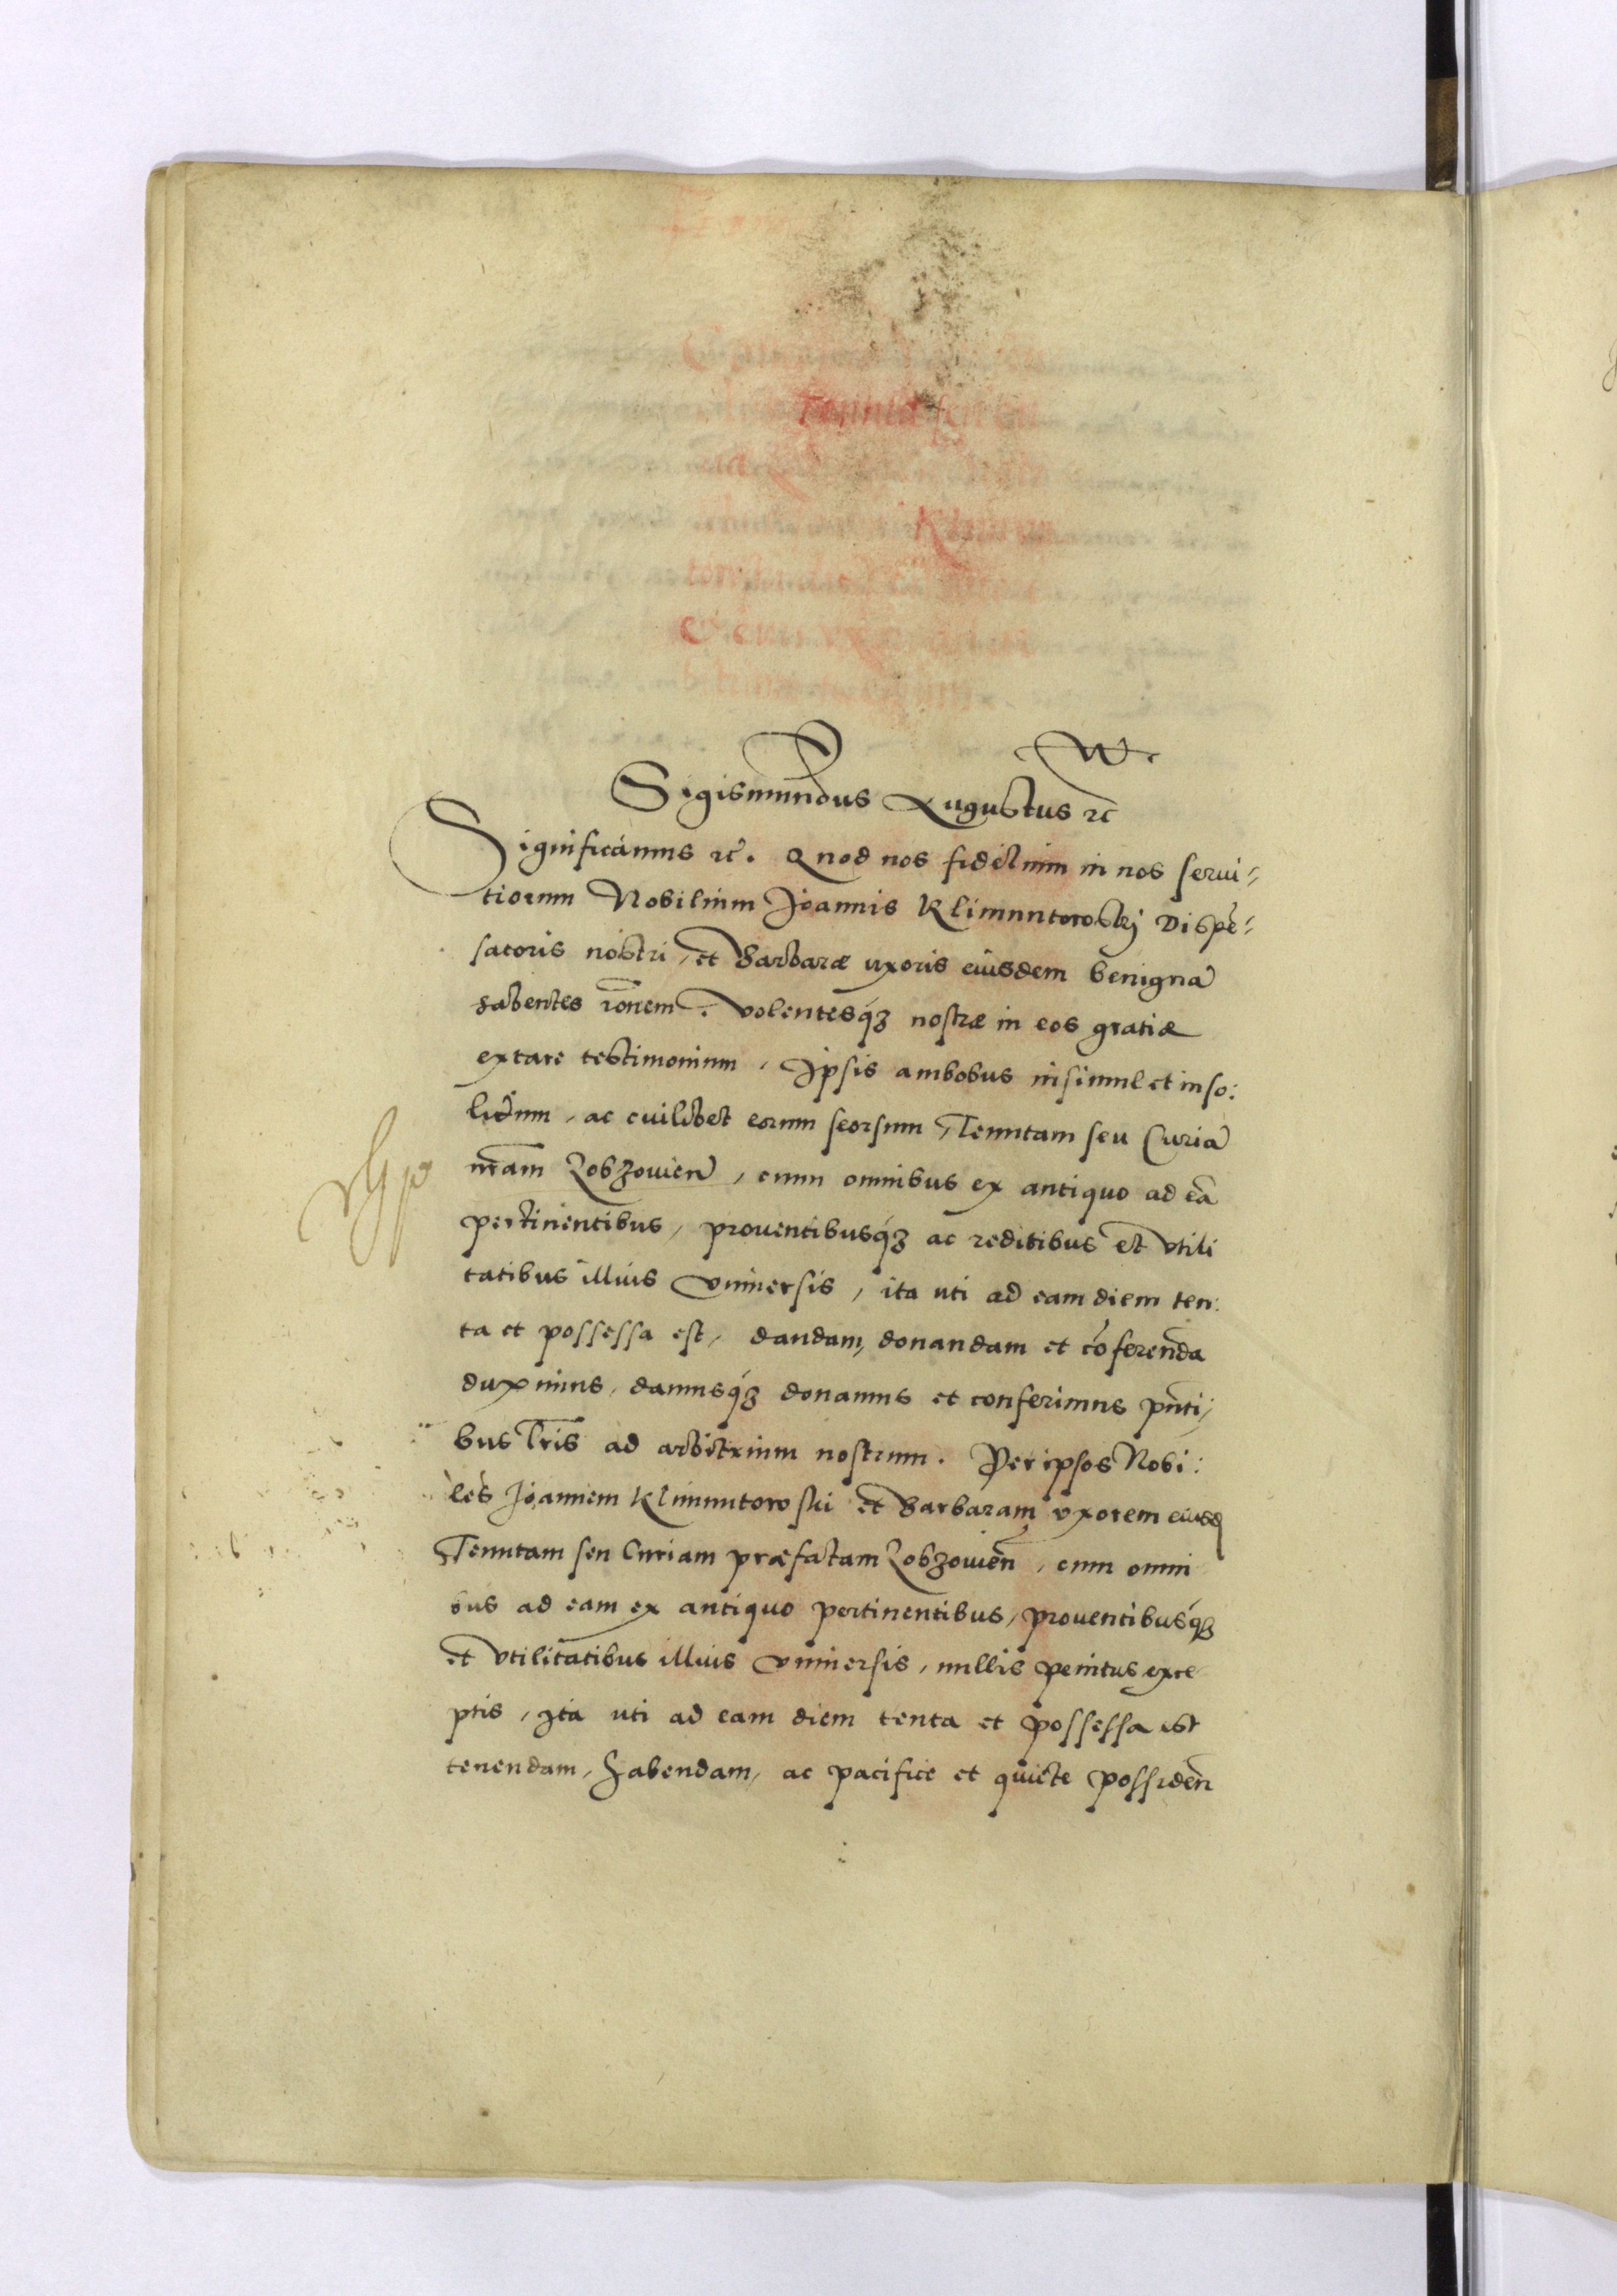 Sigismundus Augustus etc
Significamus etc. Quod nos fidelium in nos serui=
tiorum Nobilium Joannis Klimuntowskij Dispē=
satoris nostri, et Barbaræ uxoris eiusdem benignā
habentes rōnem. Volentesq́ꝫ nostræ in eos gratiæ
extare testimonium, Ipsis ambobus insimul et inso:
lidum, ac cuilibet eorum seorsum, Tenutam seu Curiā
nr̄am Lobzouien̄, cum omnibus ex antiquo ad eā
pertinentibus, prouentibusq́ꝫ ac reditibus et vtili
tatibus illius vniuersis, ita uti ad eam diem ten:
ta et possessa est, dandam, donandam et cōferendā
duximus, damusq́ꝫ donamus et conferimus pn̄ti,
bus lr̄is ad arbitrium nostrum. Per ipsos Nobi:
les Joannem Klimuntowski et Barbaram vxorem eiusd
Tenutam seu Curiam præfatam Lobzouien̄, cum omni
bus ad eam ex antiquo pertinentibus, prouentibusq́ꝫ
et vtilitatibus illius vniuersis, nullis penitus exce
ptis, ita uti ad eam diem tenta et possessa est
tenendam, habendam, ac pacifice et quiete possiden̄